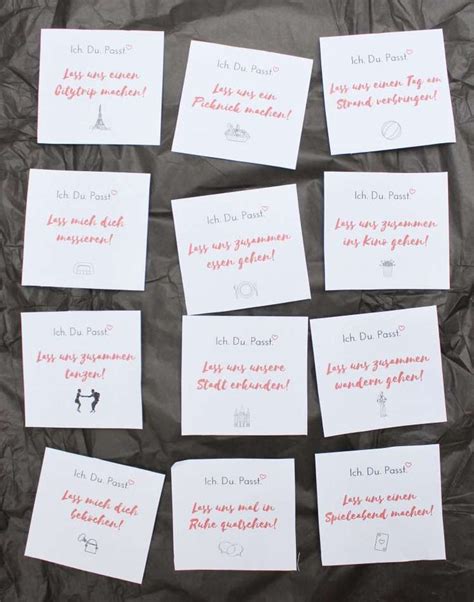 Ich. Du. Passt.
Lass uns einen
Citytrip machen!
Ich. Du. Passt.
Lass uns ein
Picknick machen!
Ich. Du. Passt.
Lass uns einen Tag am
Strand verbringen!
Ich. Du. Passt.
Lass mich dich
massieren!
Ich. Du. Passt.
Lass uns zusammen
essen gehen!
Ich. Du. Passt.
Lass uns zusammen
ins Kino gehen!
Ich. Du. Passt.
Lass uns zusammen
tanzen!
Ich. Du. Passt.
Lass uns unsere
Stadt erkunden!
Ich. Du. Passt.
Lass uns zusammen
wandern gehen!
Ich. Du. Passt.
Lass mich dich
bekochen!
Ich. Du. Passt.
Lass uns mal in
Ruhe quatschen!
Ich. Du. Passt.
Lass uns einen
Spieleabend machen!